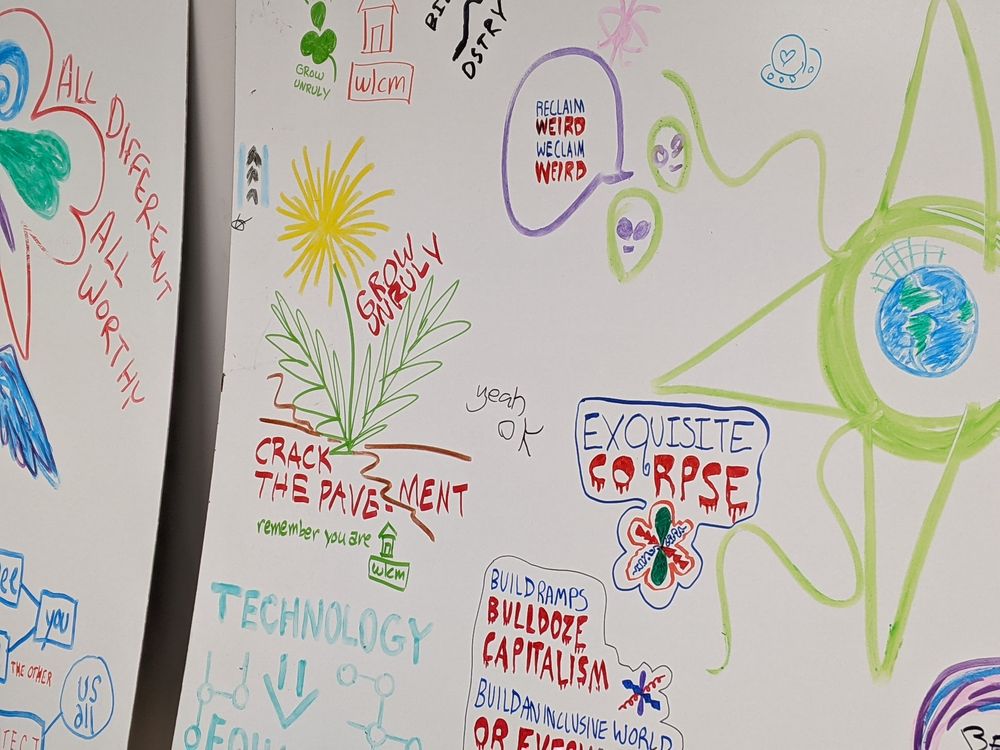 ALL
DIFFERENT
ALL
WORTHY
YOU
THE OTHER
US
all
GROW
UNRULY
wlcm
OSTRY
RECLAIM
WEIRD
WECLAIM
WEIRD
GROW
UNRULY
CRACK
THE PAVEMENT
remember you are
wlcm
yeah
OK
EXQUISITE
CORPSE
TECHNOLOGY
BUILD RAMPS
BULLDOZE
CAPITALISM
BUILD AN INCLUSIVE WORLD
OR